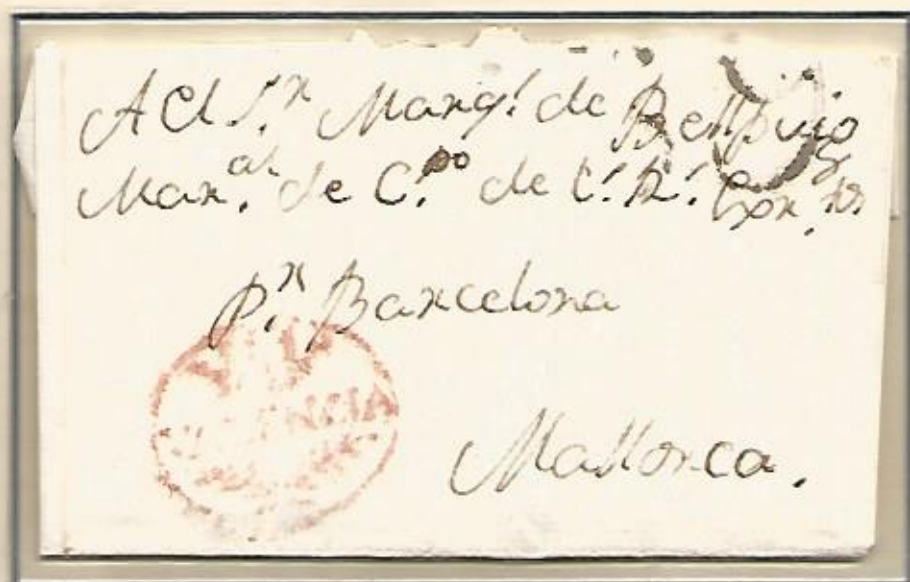 Al S.r Marq.s de Bellpuig
Mar.al de C.po de l.s R.s Exer.tos
P.r Barcelona
VALENCIA
Mallorca.